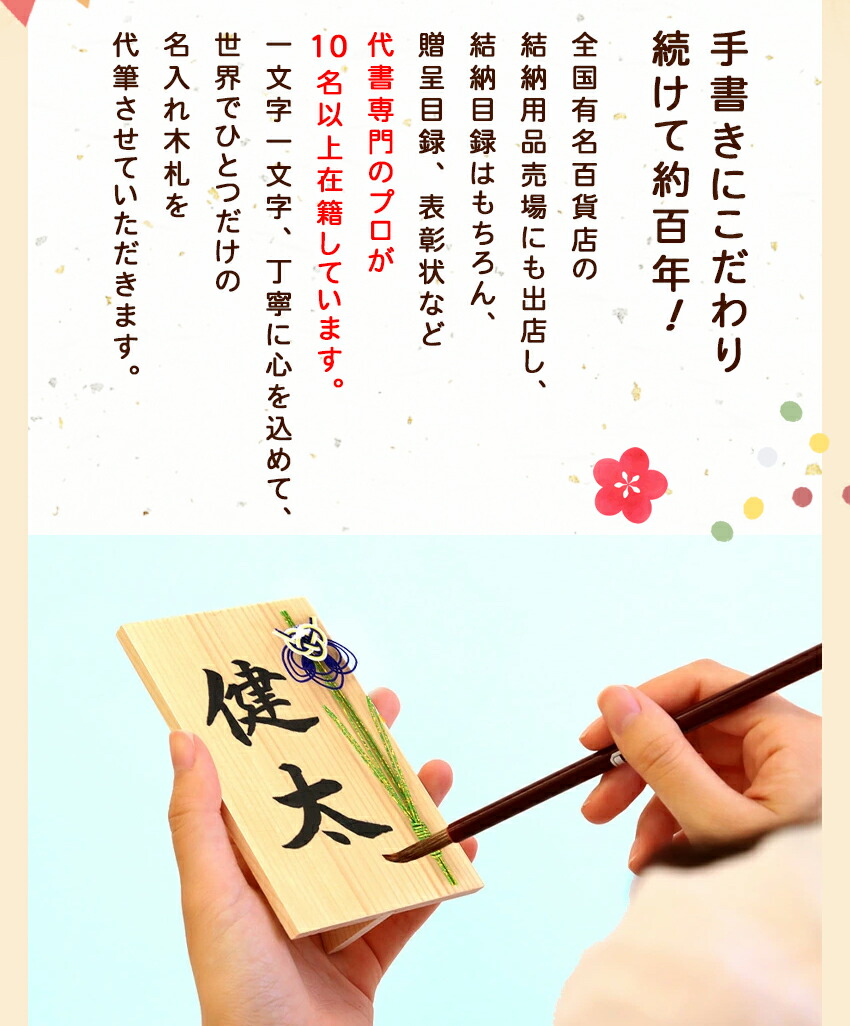 手書きにこだわり
続けて約百年！
全国有名百貨店の
結納用品売場にも出店し、
結納目録はもちろん、
贈呈目録、表彰状など
代書専門のプロが
10名以上在籍しています。
一文字一文字、丁寧に心を込めて、
世界でひとつだけの
名入れ木札を
代筆させていただきます。
健太